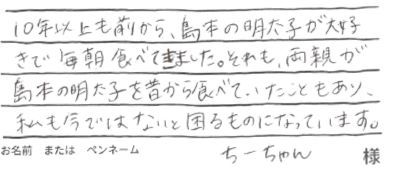 10年以上も前から、島本の明太子が大好
きで毎朝食べてきました。それも、両親が
島本の明太子を昔から食べていたこともあり、
私も今ではないと困るものになっています。
お名前 または ペンネーム ちーちゃん 様